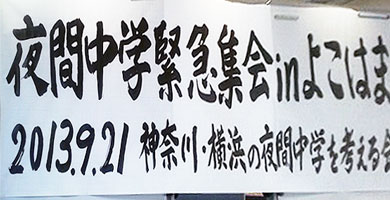 夜間中学緊急集会inよこはま
2013.9.21 神奈川・横浜の夜間中学を考える会